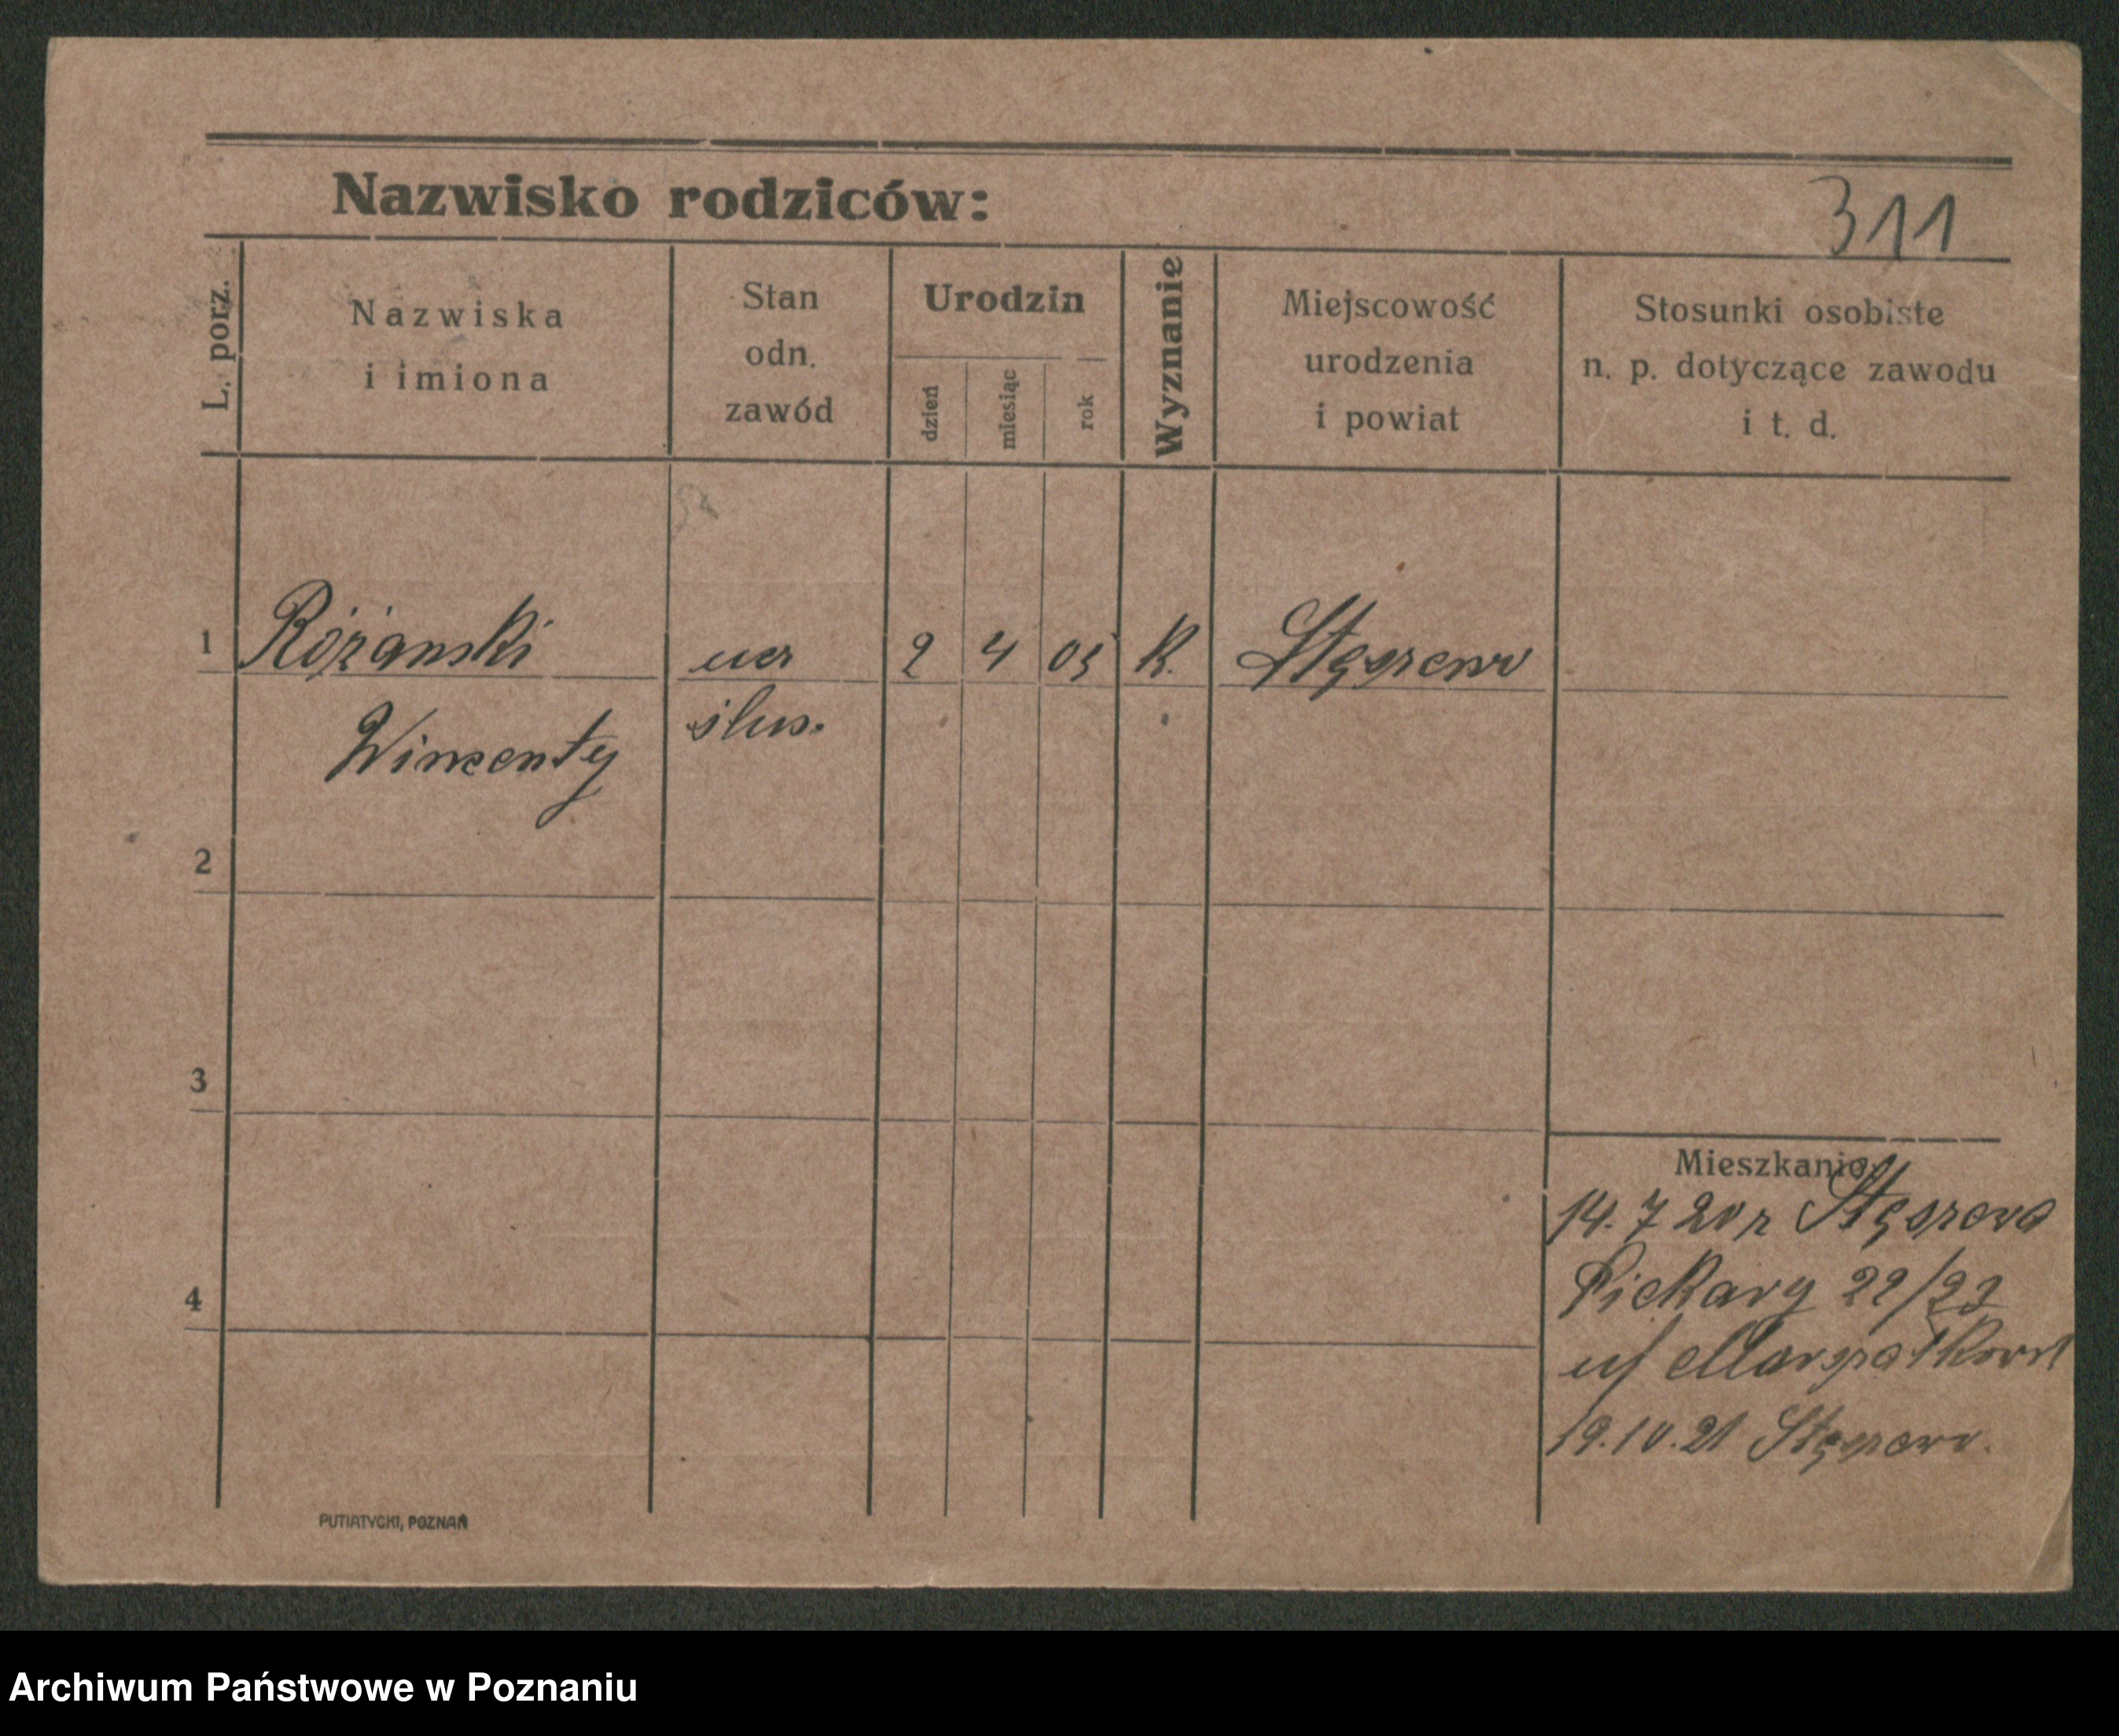 Nazwisko rodziców:
311
L. porz.
Nazwiska
i imiona
Stan
odn.
zawód
Urodzin
dzień
miesiąc
rok
Wyznanie
Miejscowość
urodzenia
i powiat
Stosunki osobiste
n. p. dotyczące zawodu
i t. d.
1
Różanski
ucz
2
4
05
K.
Stęszew
Wincenty
ślus.
2
3
4
Mieszkanie
14. 7 20 r Stęszewo
Piekary 22/23
u/
19.10.21 Stęszew.
PUTIATYCKI, POZNAŃ
Archiwum Państwowe w Poznaniu